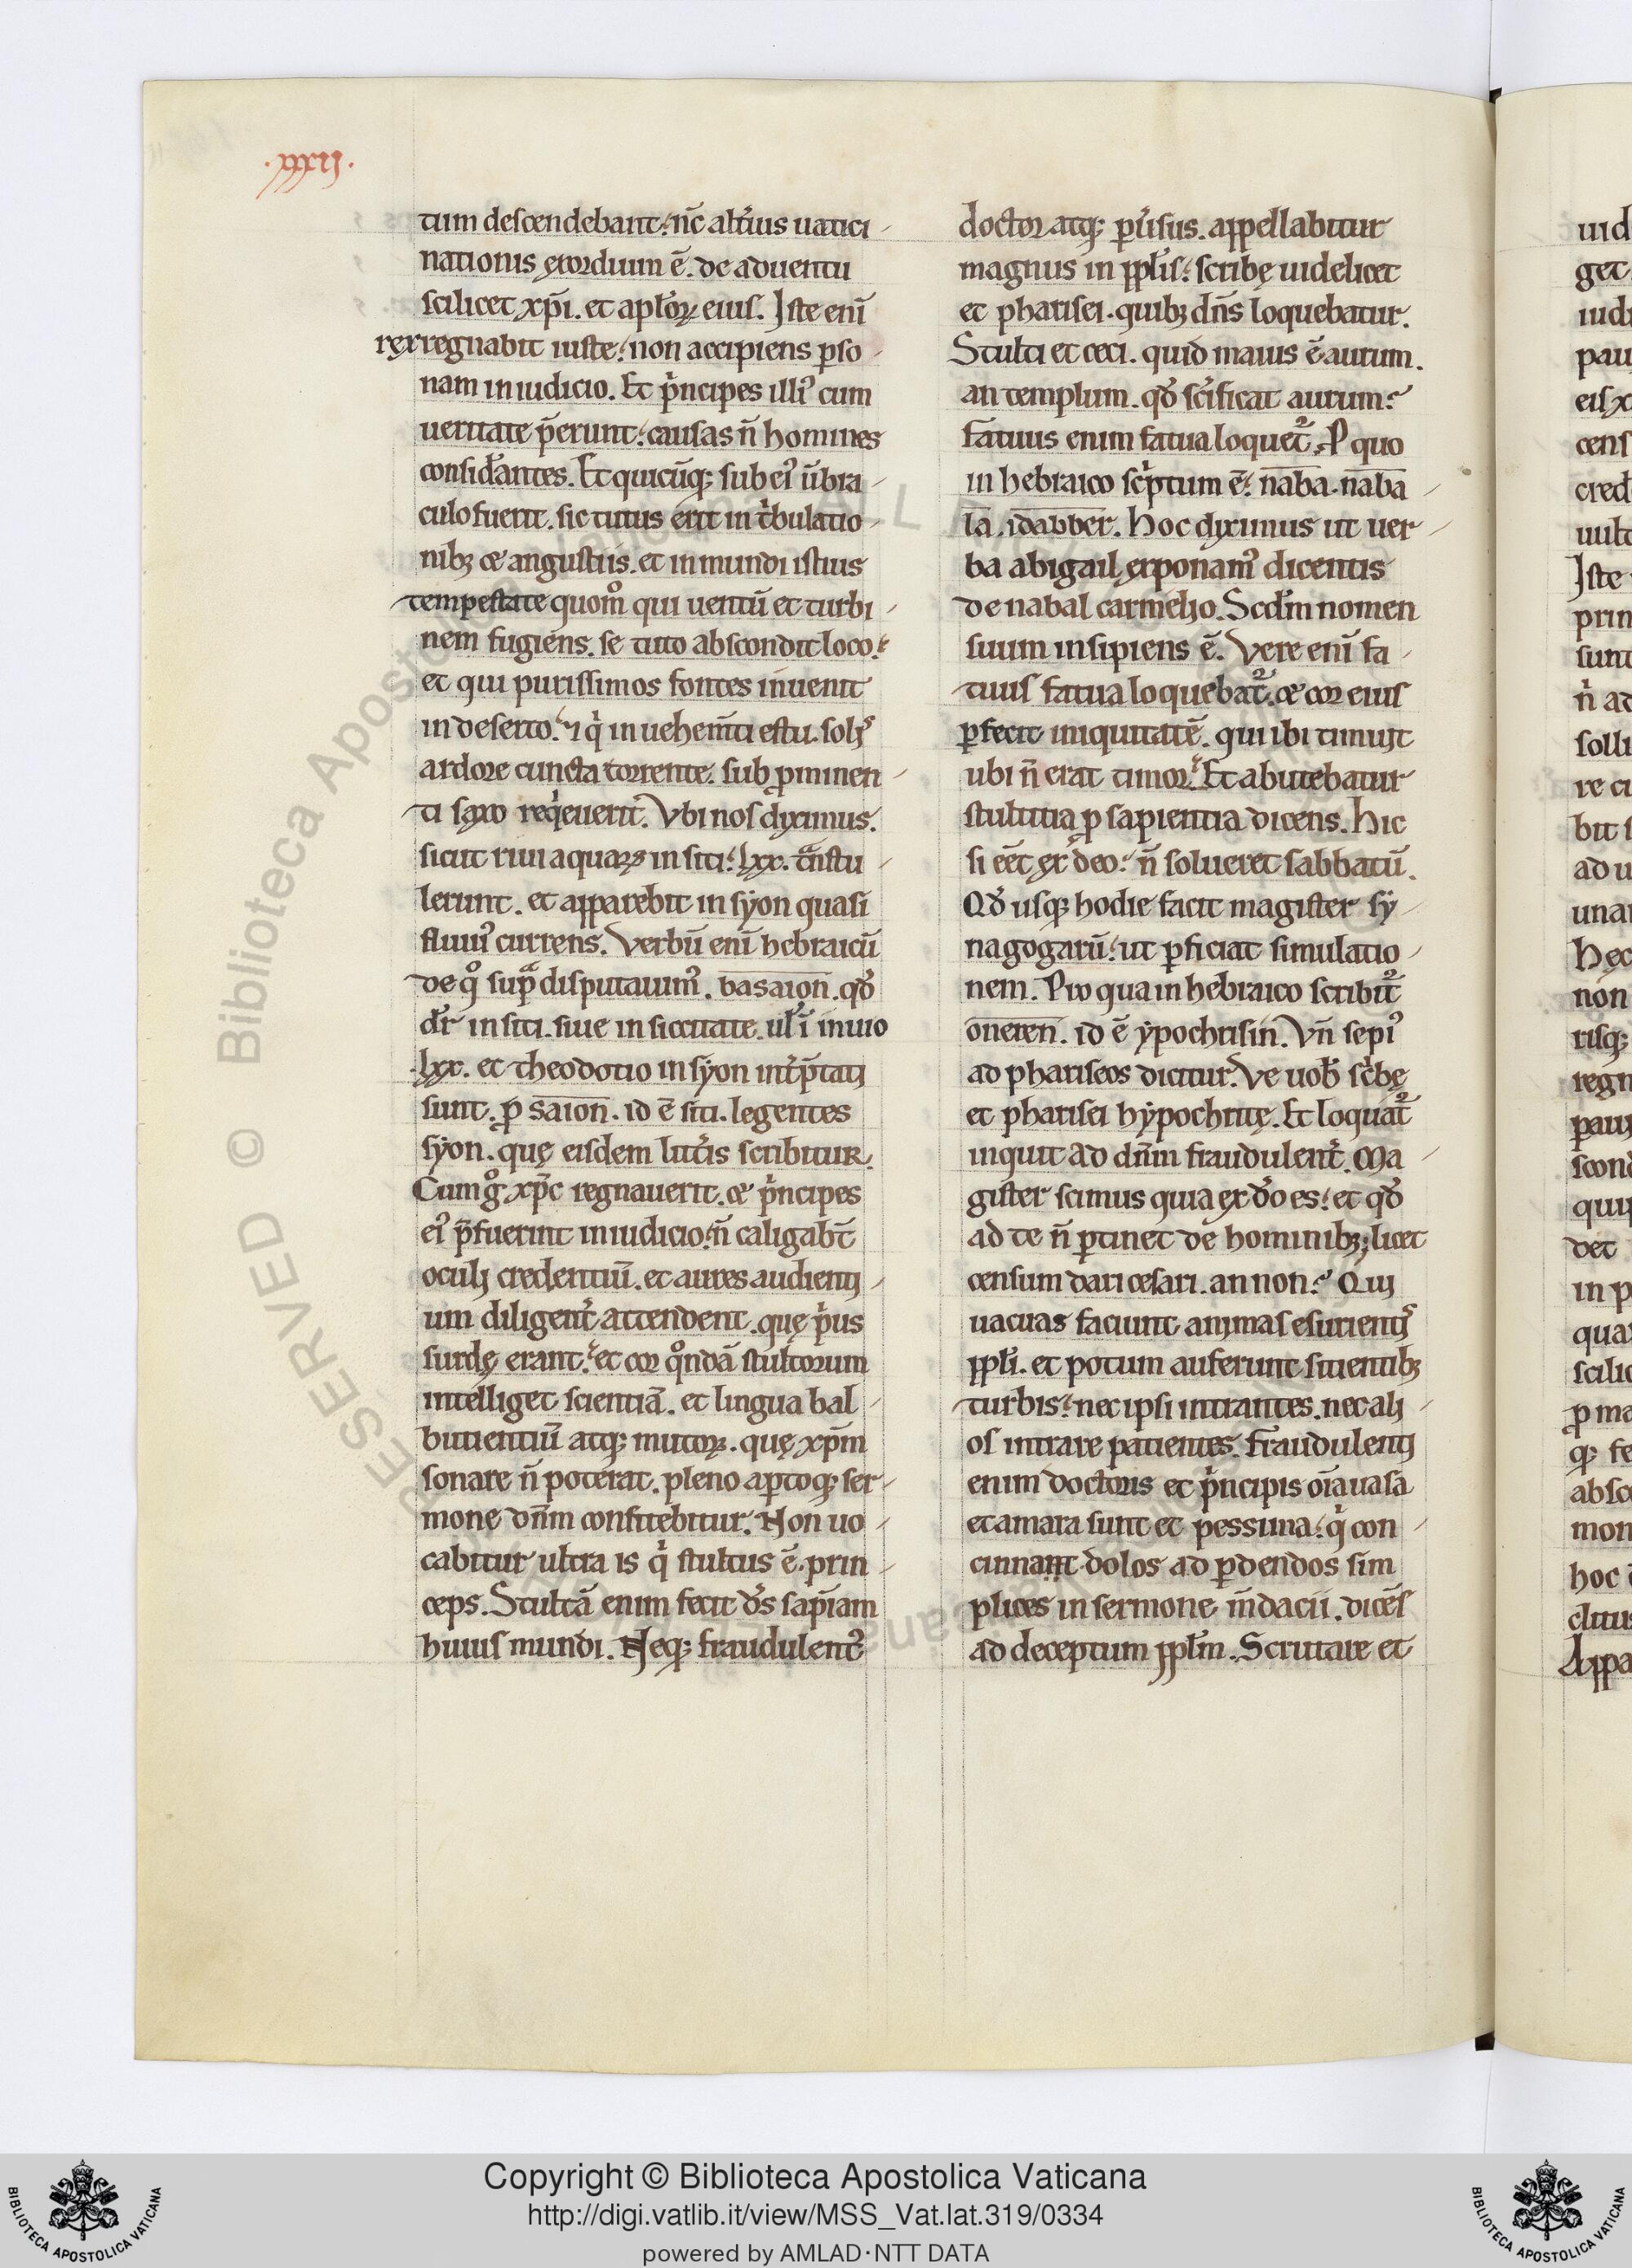 .xxxij.
tum descendebant: nc̄ alt͛ius uatici-
nationis exordium ē. de aduentu
scilicet xp̄i. et apl̄oꝝ eius. Iste enī
rex regnabit iuste: non accipiens ꝑso-
nam in iudicio. Et pͥncipes illiꝰ cum
ueritate p̄erunt: causas n̄ homines
consid͛antes. Et quicūq; sub eiꝰ ūbra-
culo fuerit. sic tutus erit in tͥbulatio-
nibꝫ & angustiis. et in mundi istius
tempestate quomͦ qui uentū et turbi-
nem fugiens. se tuto abscondit loco:
et qui purissimos fontes inuenit
in deserto: ⁊ qͥ in uehem̄ti estu. solis
ardore cuncta torrente. sub ꝓminen-
ti saxo reqͥeuerit. Vbi nos diximus.
sicut riui aquarꝫ in siti: lxx. tͣnstu-
lerunt. et apparebit in syon quasi
fluuiꝰ currens. Verbū enī hebraicū
de qͦ supͣ disputauimꝰ. basaion. qd̕
dr̄ in siti. siue in siccitate. ul̕ ī inuio
lxx. et theodotio in syon int͛p̄tati
sunt. ꝓ saion. id ē siti. legentes
syon. quę eisdem litt͛is scribitur.
Cum gͦ xp̄c regnauerit. & pͥncipes
eiꝰ p̄fuerint in iudicio: n̄ caligabt̄
oculi credentiū. et aures audienti-
um diligent͛ attendent. quę pͥus
surdę erant: et cor qͦndā stultorum
intelliget scientiā. et lingua bal-
butientiū atq; mutoꝝ. quę xp̄m
sonare n̄ poterat. pleno aptoq; ser-
mone dn̄m confitebitur. Non uo-
cabitur ultra is qͥ stultus ē. prin-
ceps. Stultā enim fecit ds̄ sap̄iam
huius mundi. Neq; fraudulent͛
doctor atq; ꝑu͛sus. appellabitur
magnus in ppl̄is: scribę uidelicet
et pharisei. quibꝫ dn̄s loquebatur.
Stulti et ceci. quid maius ē. aurum.
an templum. qd̕ sc̄ificat aurum?
Fatuus enim fatua loquet᷑. P quo
in hebraico scͥptum ē: naba. naba-
la. idabber. Hoc diximus ut uer-
ba abigail exponamꝰ dicentis
de nabal carmelio. Scd̄m nomen
suum insipiens ē. Vere enī fa-
tuus fatua loquebat᷑. & cor eius
ꝑfecit iniquitatē. qui ibi timuit
ubi n̄ erat timor: Et abutebatur
stultitia ꝓ sapientia dicens. Hic
si eēt ex deo: n̄ solueret sabbatū.
Qd̕ usq; hodie facit magister sy-
nagogarū: ut ꝑficiat simulatio-
nem. Pro qua in hebraico scribit᷑
oneren. id ē ypochrisin. Vn̄ sepiꝰ
ad phariseos dicitur. Ve uob̄ scͥbę
et pharisei hypochritę. Et loquat᷑
inquit ad dn̄m fraudulent͛. Ma-
gister scimus quia ex dō es: et qd̕
ad te n̄ ꝑtinet de hominibꝫ; licet
censum dari cesari. an non? Qui
uacuas faciunt animas esurientis
ppl̄i. et potum auferunt sitientibꝫ
turbis: nec ipsi intrantes. nec ali-
os intrare patientes. Fraudulenti
enim doctoris et pͥncipis oīa uasa
et amara sunt et pessima: qͥ con-
cinnant dolos ad ꝑdendos sim
plices in sermone m̄dacii. dicēs
ad deceptum ppl̄m. Scrutare et
Copyright © Biblioteca Apostolica Vaticana
http://digi.vatlib.it/view/MSS_Vat.lat.319/0334
powered by AMLAD·NTT DATA